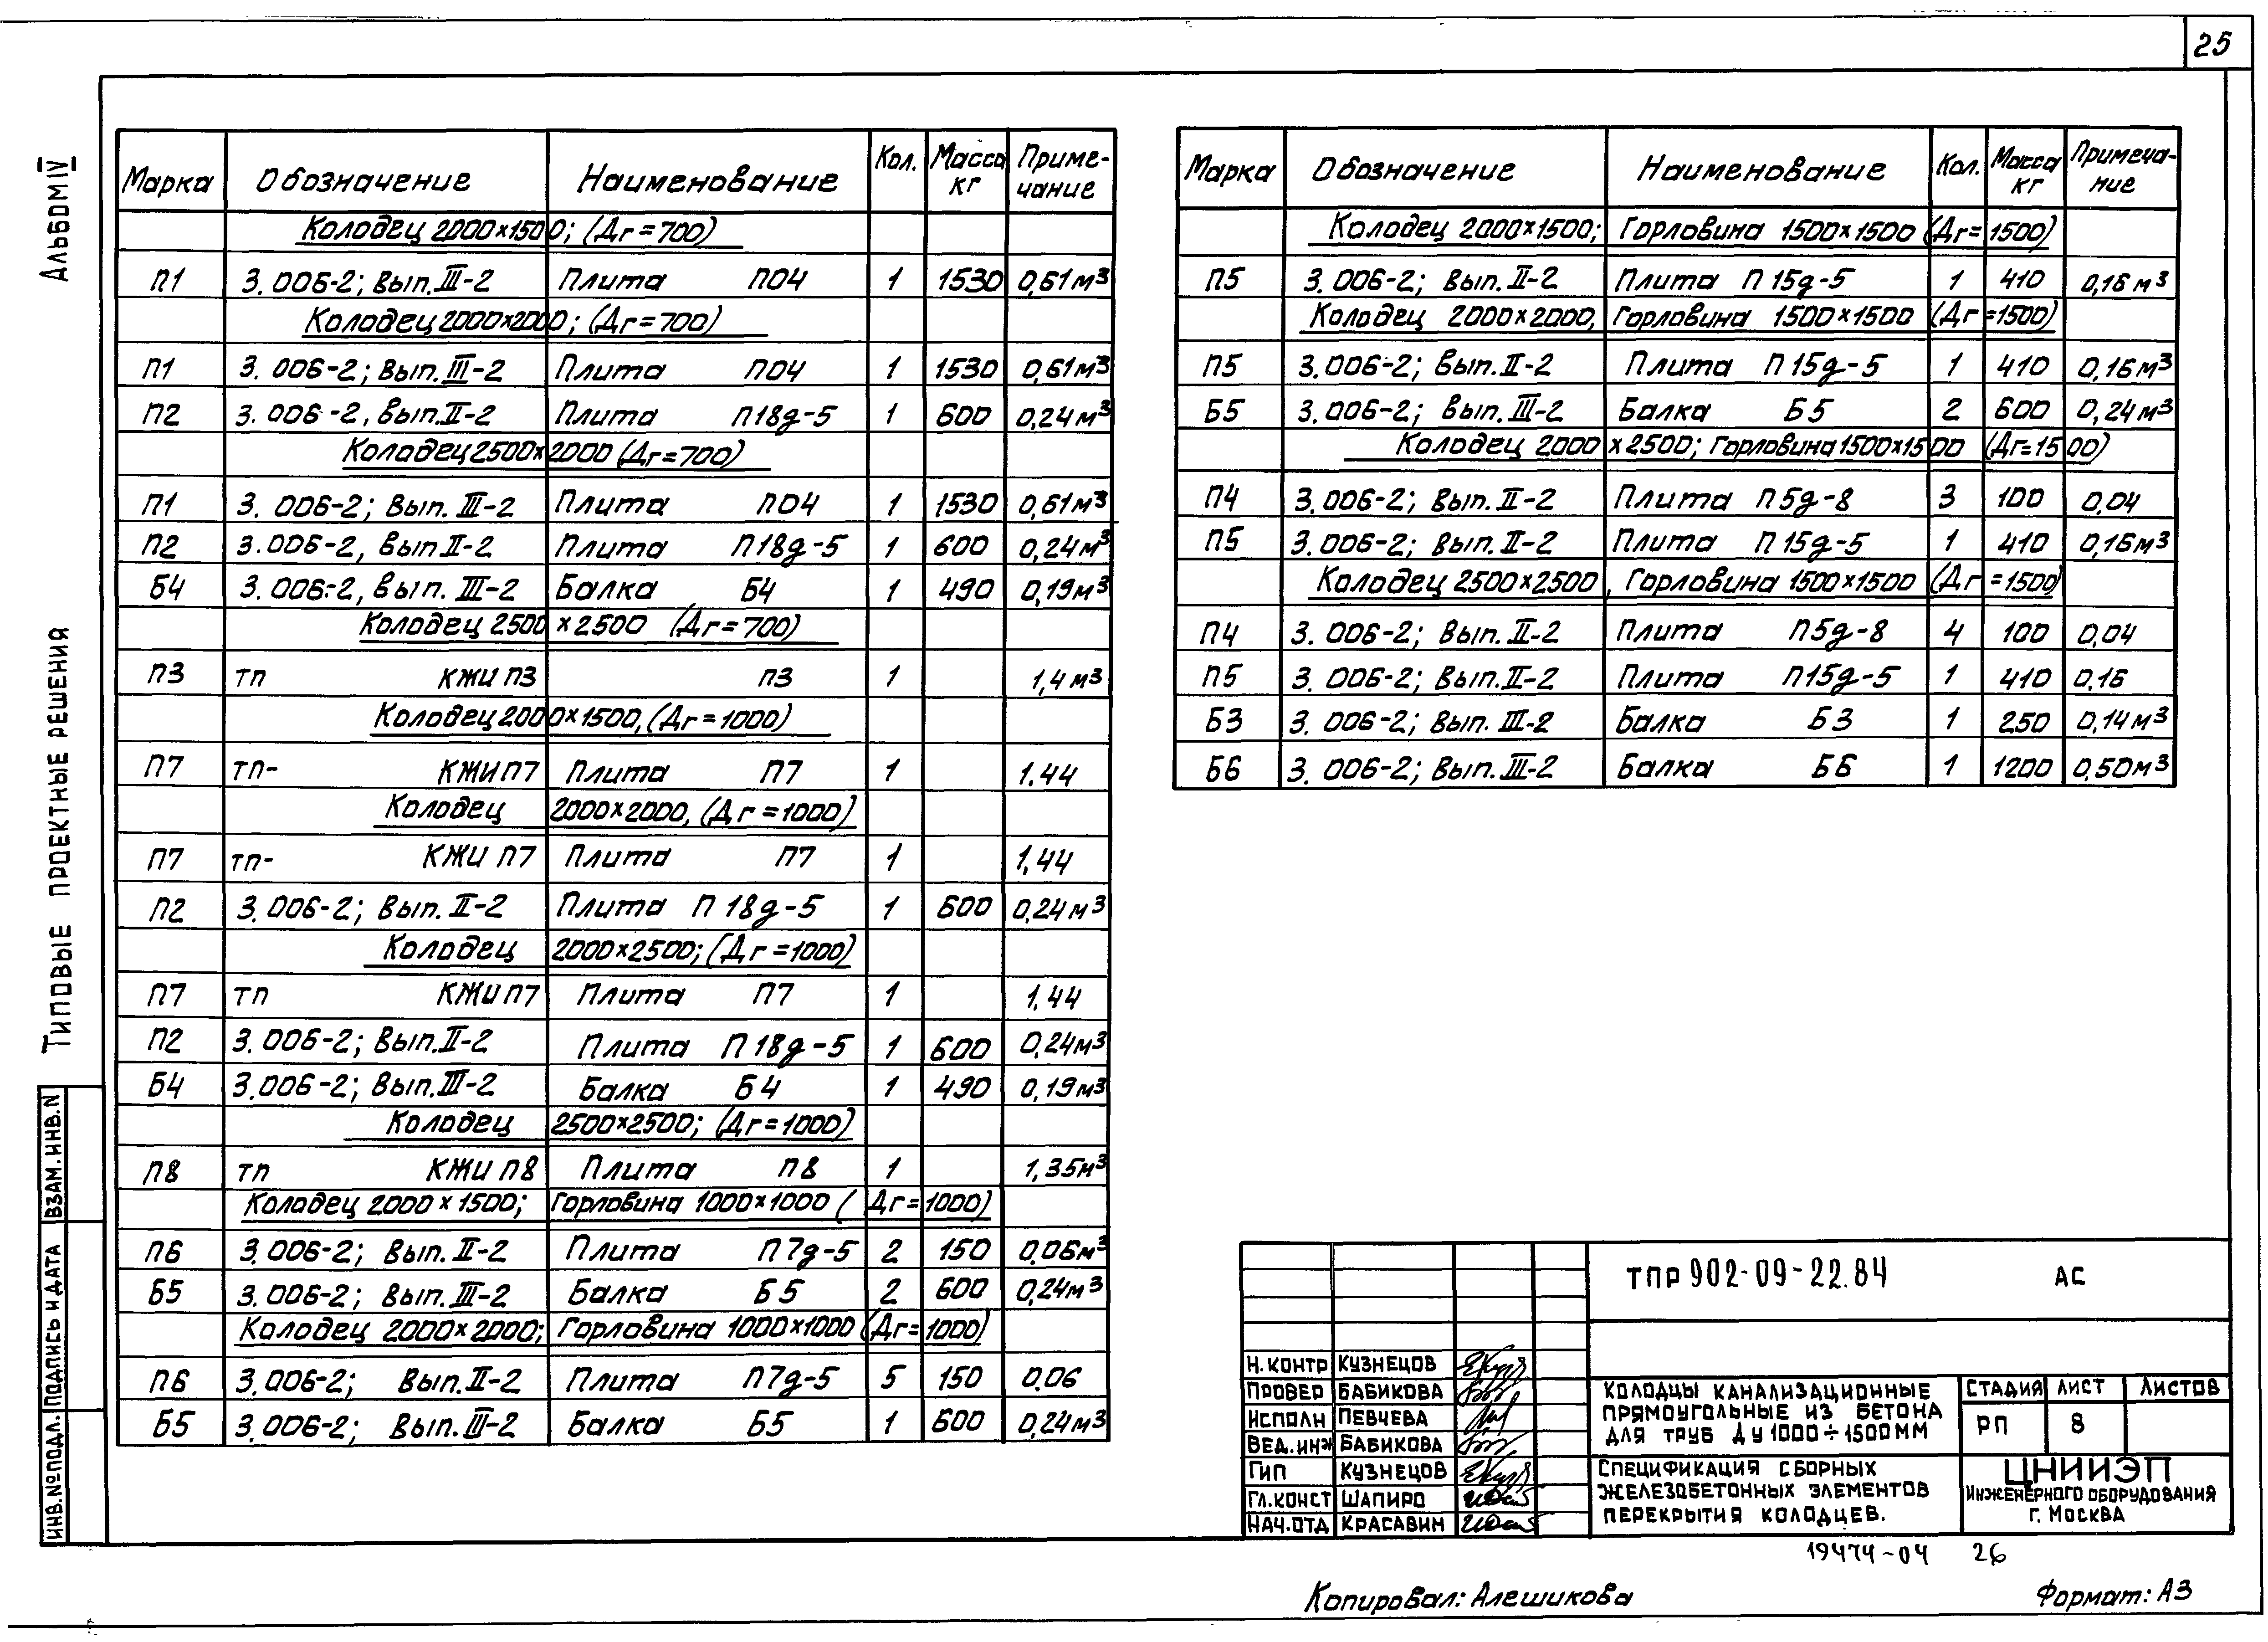 25
Альбом IV
Типовые проектные решения
Марка Обозначение Наименование Кол. Масса кг Приме-чание
Колодец 2000×1500; (Дг=700)
П1 3.006-2; Вып. III-2 Плита П04 1 1530 0,61м³
Колодец 2000×2000; (Дг=700)
П1 3.006-2; Вып. III-2 Плита П04 1 1530 0,61м³
П2 3.006-2, Вып. II-2 Плита П18д-5 1 600 0,24м³
Колодец 2500×2000 (Дг=700)
П1 3.006-2; Вып. III-2 Плита П04 1 1530 0,61м³
П2 3.006-2, Вып II-2 Плита П18д-5 1 600 0,24м³
Б4 3.006-2, Вып. III-2 Балка Б4 1 490 0,19м³
Колодец 2500×2500 (Дг=700)
П3 ТП КЖИ П3 П3 1 1,4м³
Колодец 2000×1500, (Дг=1000)
П7 ТП- КЖИ П7 Плита П7 1 1.44
Колодец 2000×2000, (Дг=1000)
П7 ТП- КЖИ П7 Плита П7 1 1,44
П2 3.006-2; Вып. II-2 Плита П18д-5 1 600 0,24м³
Колодец 2000×2500; (Дг=1000)
П7 ТП КЖИ П7 Плита П7 1 1,44
П2 3.006-2; Вып. II-2 Плита П18д-5 1 600 0,24м³
Б4 3.006-2; Вып. III-2 Балка Б4 1 490 0,19м³
Колодец 2500×2500; (Дг=1000)
П8 ТП КЖИ П8 Плита П8 1 1,35м³
Колодец 2000×1500; Горловина 1000×1000 (Дг=1000)
П6 3.006-2; Вып. II-2 Плита П7д-5 2 150 0,06м³
Б5 3.006-2; Вып. III-2 Балка Б5 2 600 0,24м³
Колодец 2000×2000; Горловина 1000×1000 (Дг=1000)
П6 3.006-2; Вып. II-2 Плита П7д-5 5 150 0,06
Б5 3.006-2; Вып. III-2 Балка Б5 1 600 0,24м³
Марка Обозначение Наименование Кол. Масса кг Примеча-ние
Колодец 2000×1500; Горловина 1500×1500 (Дг=1500)
П5 3.006-2; Вып. II-2 Плита П15д-5 1 410 0,16м³
Колодец 2000×2000, Горловина 1500×1500 (Дг=1500)
П5 3.006-2; Вып. II-2 Плита П15д-5 1 410 0,16м³
Б5 3.006-2; Вып. III-2 Балка Б5 2 600 0,24м³
Колодец 2000×2500; Горловина 1500×1500 (Дг=1500)
П4 3.006-2; Вып. II-2 Плита П5д-8 3 100 0,04
П5 3.006-2; Вып. II-2 Плита П15д-5 1 410 0,16м³
Колодец 2500×2500, Горловина 1500×1500 (Дг=1500)
П4 3.006-2; Вып. II-2 Плита П5д-8 4 100 0,04
П5 3.006-2; Вып. II-2 Плита П15д-5 1 410 0,16
Б3 3.006-2; Вып. III-2 Балка Б3 1 250 0,14м³
Б6 3.006-2; Вып. III-2 Балка Б6 1 1200 0,50м³
Взам. инв. N
Подпись и дата
Инв. № подл.
ТПР 902-09-22.84 АС
Н. контр Кузнецов
Провер Бабикова
Исполн Певчева
Вед. инж Бабикова
Гип Кузнецов
Гл. конст Шапиро
Нач. отд Красавин
Колодцы канализационные
прямоугольные из бетона
для труб Ду 1000÷1500мм
Стадия Лист Листов
РП 8
Спецификация сборных
железобетонных элементов
перекрытия колодцев.
ЦНИИЭП
инженерного оборудования
г. Москва
19474-04 26
Копировал: Алешикова
Формат: А3